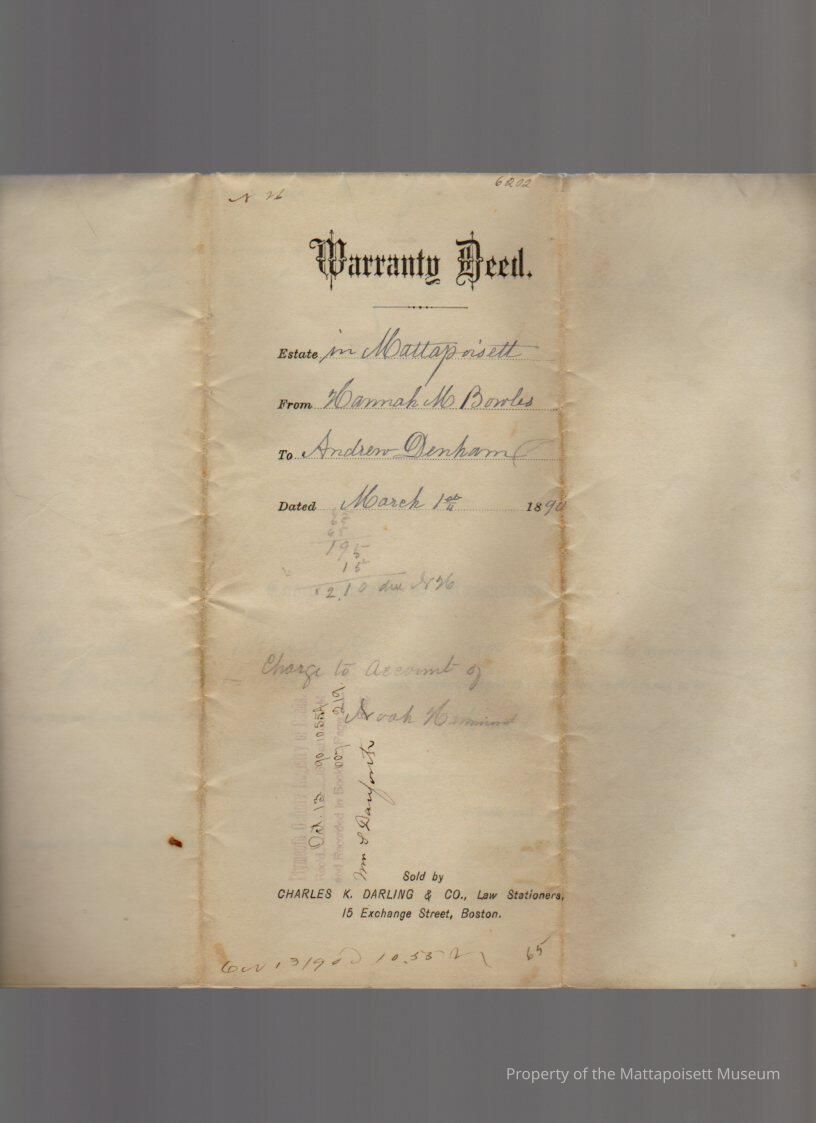 N H
6202
Warranty Deed.
Estate in Mattapoisett
From Hannah M Bowles
To Andrew Denham
Dated March 1st 1890
65
195
15
$2.10 due N H
Charge to Account of
Noah Hammond
Plymouth Registry of Deeds
Oct 13 90 10.55
and Recorded in Book Page 219
Wm S Danforth
Sold by
CHARLES K. DARLING & CO., Law Stationers,
15 Exchange Street, Boston.
13 10.55
65
Property of the Mattapoisett Museum